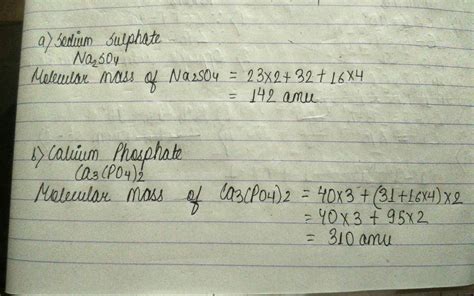 a) Sodium Sulphate
Na2SO4
Molecular mass of Na2SO4 = 23x2+32+16x4
= 142 amu
b) Calcium Phosphate
Ca3(PO4)2
Molecular Mass of Ca3(PO4)2 = 40x3+(31+16x4)x2
= 40x3 + 95x2
= 310 amu